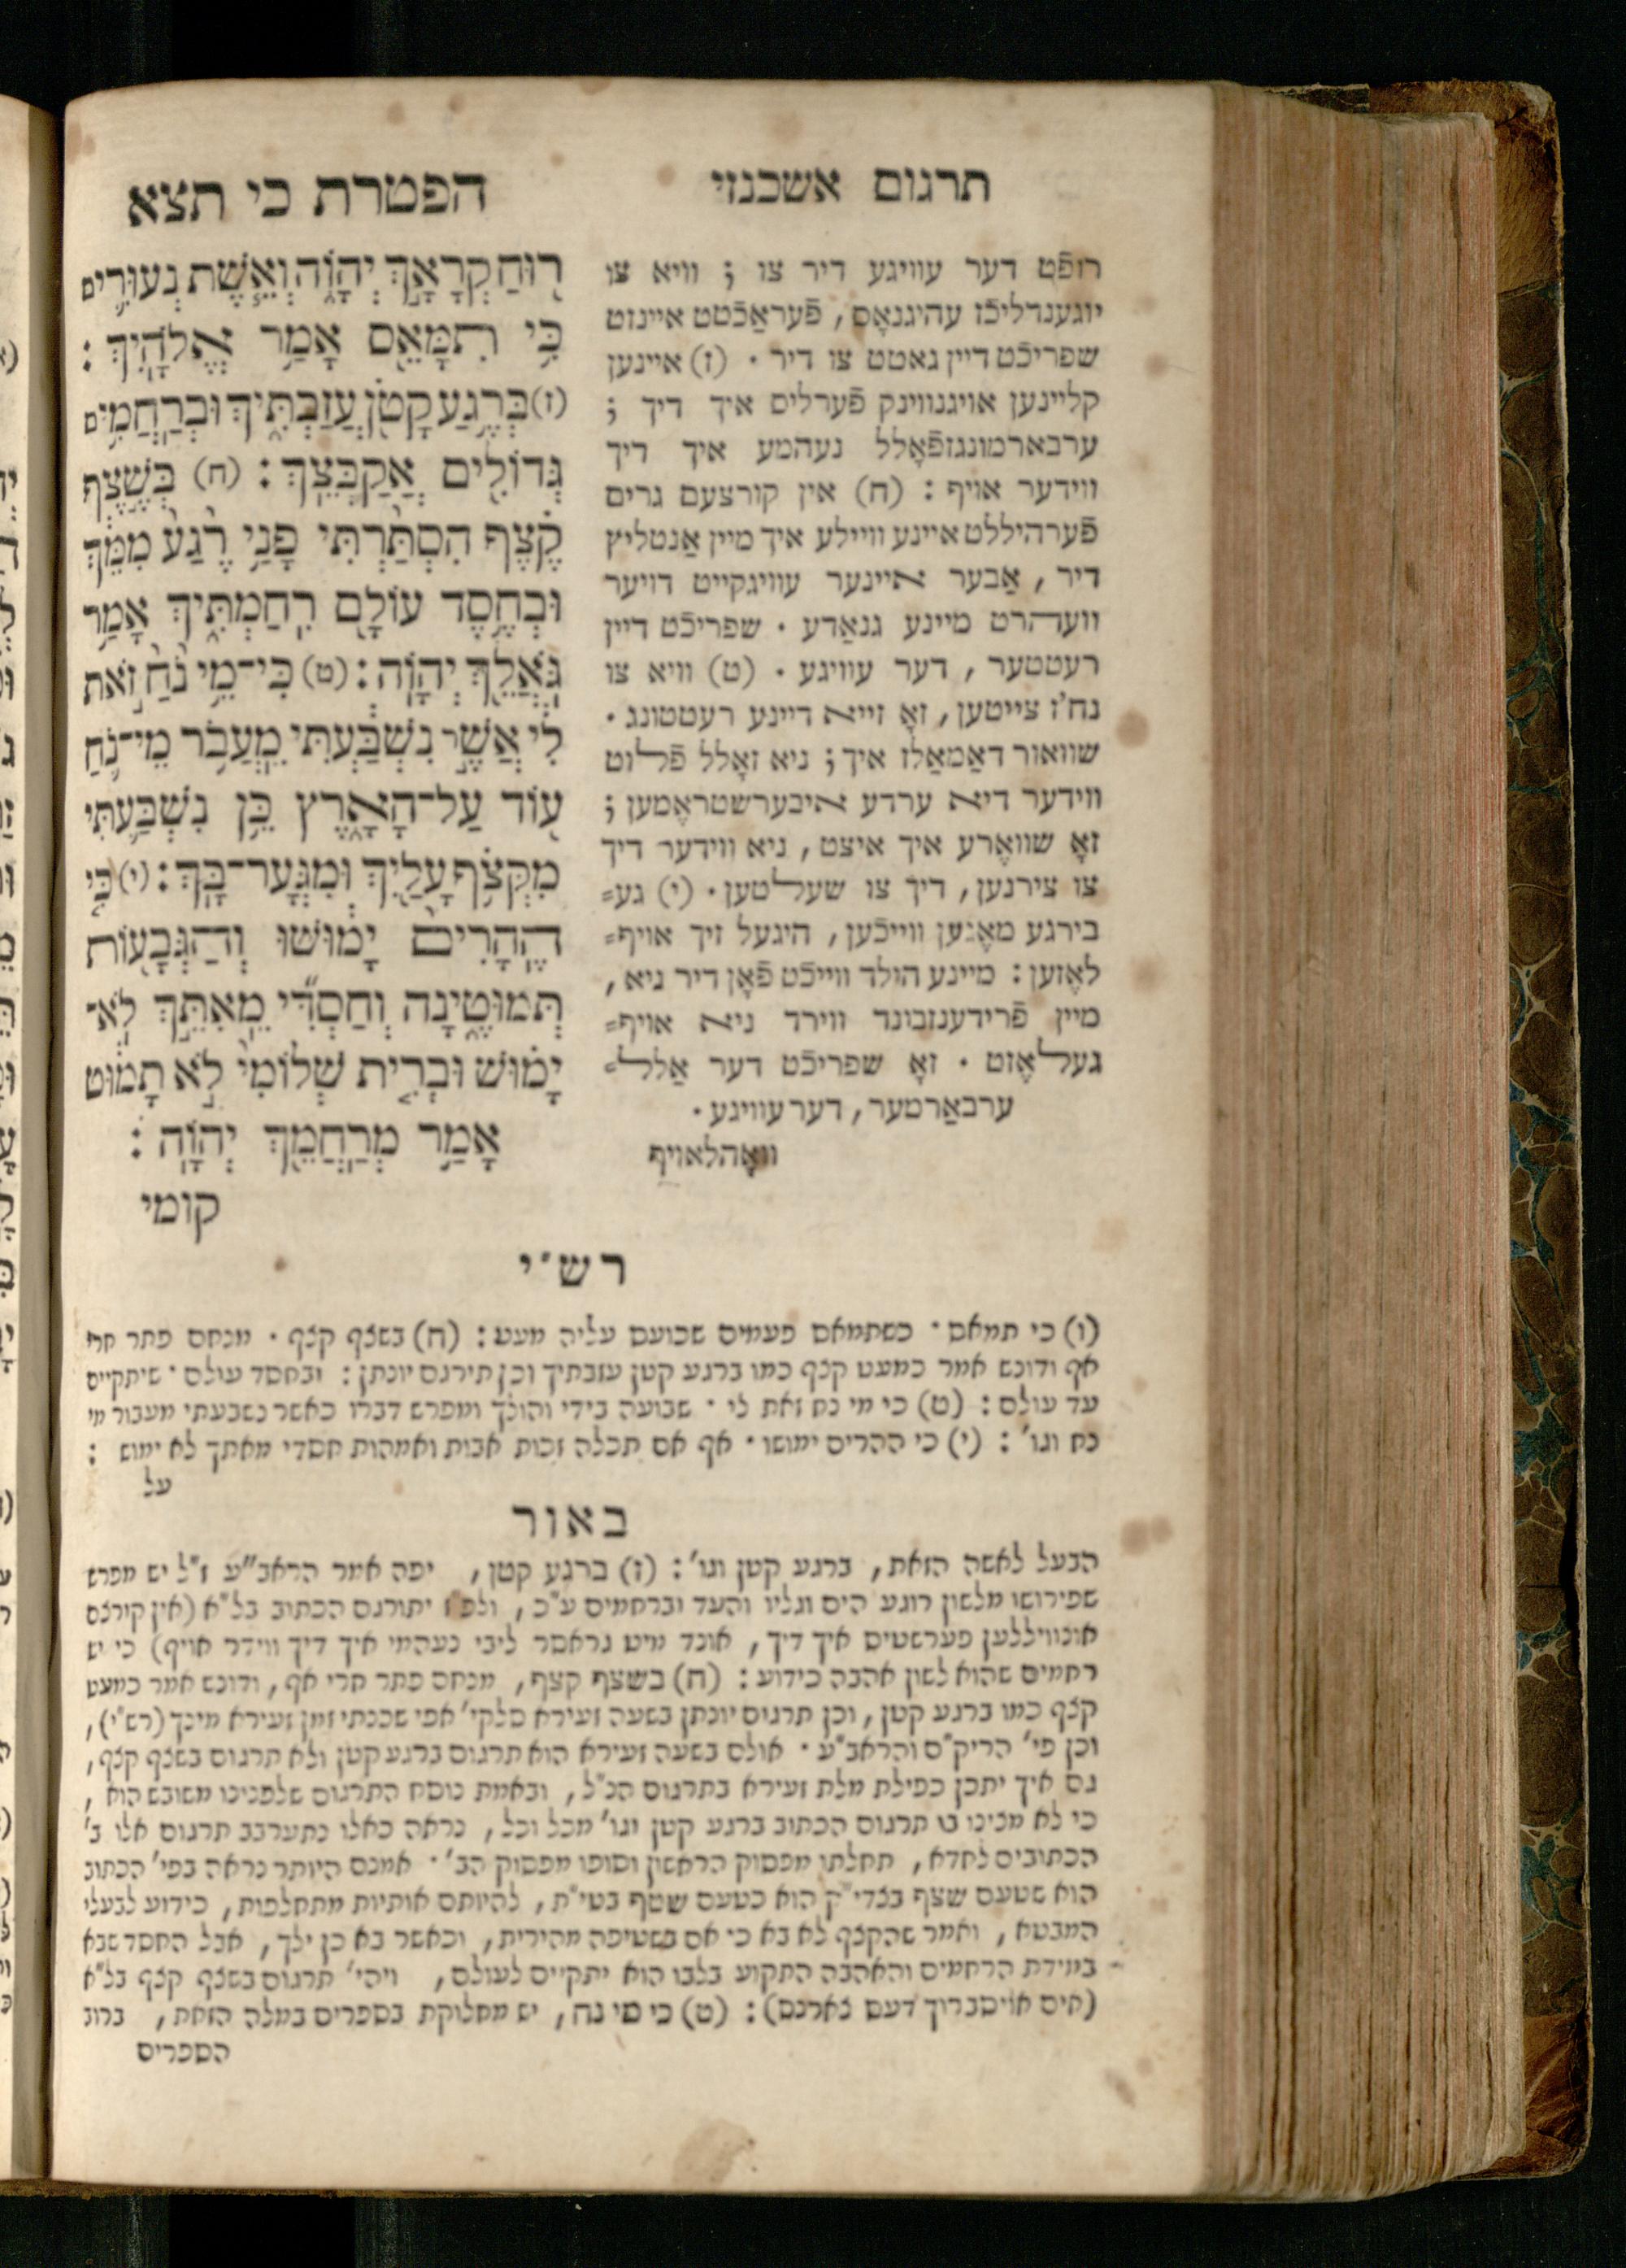 תרגום אשכנזי
הפטרת כי תצא
רופֿט דער עוויגע דיר צו ; וויא צו
יוגענדליכֿז עהיגנאָס, פֿעראַכֿטט איינזט
שפריכֿט דיין גאטט צו דיר · (ז) איינען
קליינען אויגנווינק פֿערליס איך דיך ;
ערבארמונגזפֿאָלל נעהמע איך דיך
ווידער אויף : (ח) אין קורצעם גרים
פֿערהיללט איינע ווײלע איך מיין אַנטליץ
דיר, אַבער איינער עוויגקייט דויער
וועהרט מיינע גנאַדע · שפריכֿט דיין
רעטטער, דער עוויגע · (ט) וויא צו
נח'ז צייטען, זאָ זייא דיינע רעטטונג ·
שוואור דאַמאַלז איך; ניא זאָלל פֿלוט
ווידער דיא ערדע איבערשטראָמען ;
זאָ שוואָרע איך איצט, ניא ווידער דיך
צו צירנען, דיך צו שעלטען · (י) גע=
בירגע מאָגען ווייכֿען, היגעל זיך אויף=
לאָזען : מיינע הולד ווייכֿט פֿאָן דיר ניא,
מיין פֿרידענזבונד ווירד ניא אויף=
געלאָזט · זאָ שפריכֿט דער אַלל=
ערבאַרמער, דער עוויגע ·
וואָהלאויף
ר֖וּחַ קְרָאָ֣ךְ יְהוָ֑ה וְאֵ֧שֶׁת נְעוּרִ֛ים
כִּ֥י תִמָּאֵ֖ס אָמַ֥ר אֱלֹהָֽיִךְ :
(ז) בְּרֶ֥גַע קָטֹ֖ן עֲזַבְתִּ֑יךְ וּבְרַחֲמִ֥ים
גְּדוֹלִ֖ים אֲקַבְּצֵֽךְ : (ח) בְּשֶׁ֣צֶף
קֶ֗צֶף הִסְתַּ֨רְתִּי פָנַ֥י רֶ֙גַע֙ מִמֵּ֔ךְ
וּבְחֶ֥סֶד עוֹלָ֖ם רִֽחַמְתִּ֑יךְ אָמַ֥ר
גֹּאֲלֵ֖ךְ יְהוָֽה : (ט) כִּי־מֵ֥י נֹ֙חַ֙ זֹ֣את
לִ֔י אֲשֶׁ֣ר נִשְׁבַּ֗עְתִּי מֵעֲבֹ֥ר מֵי־נֹ֛חַ
ע֖וֹד עַל־הָאָ֑רֶץ כֵּ֥ן נִשְׁבַּ֛עְתִּי
מִקְּצֹ֥ף עָלַ֖יִךְ וּמִגְּעָר־בָּֽךְ : (י) כִּ֤י
הֶֽהָרִים֙ יָמ֔וּשׁוּ וְהַגְּבָע֖וֹת
תְּמוּטֶ֑ינָה וְחַסְדִּ֞י מֵאִתֵּ֣ךְ לֹֽא־
יָמ֗וּשׁ וּבְרִ֤ית שְׁלוֹמִי֙ לֹ֣א תָמ֔וּט
אָמַ֥ר מְרַחֲמֵ֖ךְ יְהוָֽה :
קומי
רש״י
(ו) כי תמאס · כשתמאס פעמים שכועס עליה מעט : (ח) בשצף קצף · מנחם פתר חרי
אף ודונש אמר כמעט קצף כמו ברגע קטן עזבתיך וכן תירגם יונתן : ובחסד עולם · שיתקיים
עד עולם : (ט) כי מי נח זאת לי · שבועה בידי והולך ומפרש דברו כאשר נשבעתי מעבור מי
נח וגו' : (י) כי ההרים ימושו · אף אם תכלה זכות אבות ואמהות חסדי מאתך לא ימוש :
על
באור
הבעל לאשה הזאת, ברגע קטן וגו' : (ז) ברגע קטן, יפה אמר הראב״ע ז״ל יש מפרש
שפירושו מלשון רוגע הים וגליו והעד וברחמים ע״כ, ולפ״ז יתורגם הכתוב בל״א (אין קירצס
אונוויללען פערשטיס איך דיך, אונד מיט גראסר ליבי נעהמי איך דיך ווידר אויף) כי יש
רחמים שהוא לשון אהבה כידוע : (ח) בשצף קצף, מנחם פתר חרי אף, ודונש אמר כמעט
קצף כמו ברגע קטן, וכן תרגום יונתן בשעה זעירא סלקי' אפי שכנתי זמן זעירא מינך (רש״י),
וכן פי' הריק״ם והראב״ע · אולם בשעה זעירא הוא תרגום ברגע קטן ולא תרגום בשצף קצף,
גם איך יתכן כפילת מלת זעירא בתרגום הנ״ל, ובאמת נוסח התרגום שלפנינו משובש הוא,
כי לא מצינו בו תרגום הכתוב ברגע קטן וגו' מכל וכל, נראה כאלו נתערבב תרגום אלו ב'
הכתובים לחדא, תחלתו מפסוק הראשון וסופו מפסוק הב' · אמנם היותר נראה בפי' הכתוב
הוא שטעם שצף בצדי״ק הוא כטעם שטף בטי״ת, להיותם אותיות מתחלפות, כידוע לבעלי
המבטא, ואמר שהקצף לא בא כי אם בשטיפה מהירית, וכאשר בא כן ילך, אבל החסד שבא
במידת הרחמים והאהבה התקוע בלבו הוא יתקיים לעולם, ויהי' תרגום בשצף קצף בל״א
(אים אויסברוך דעס צארנס) : (ט) כי מי נח, יש מחלוקת בספרים במלה הזאת, ברוב
הספרים